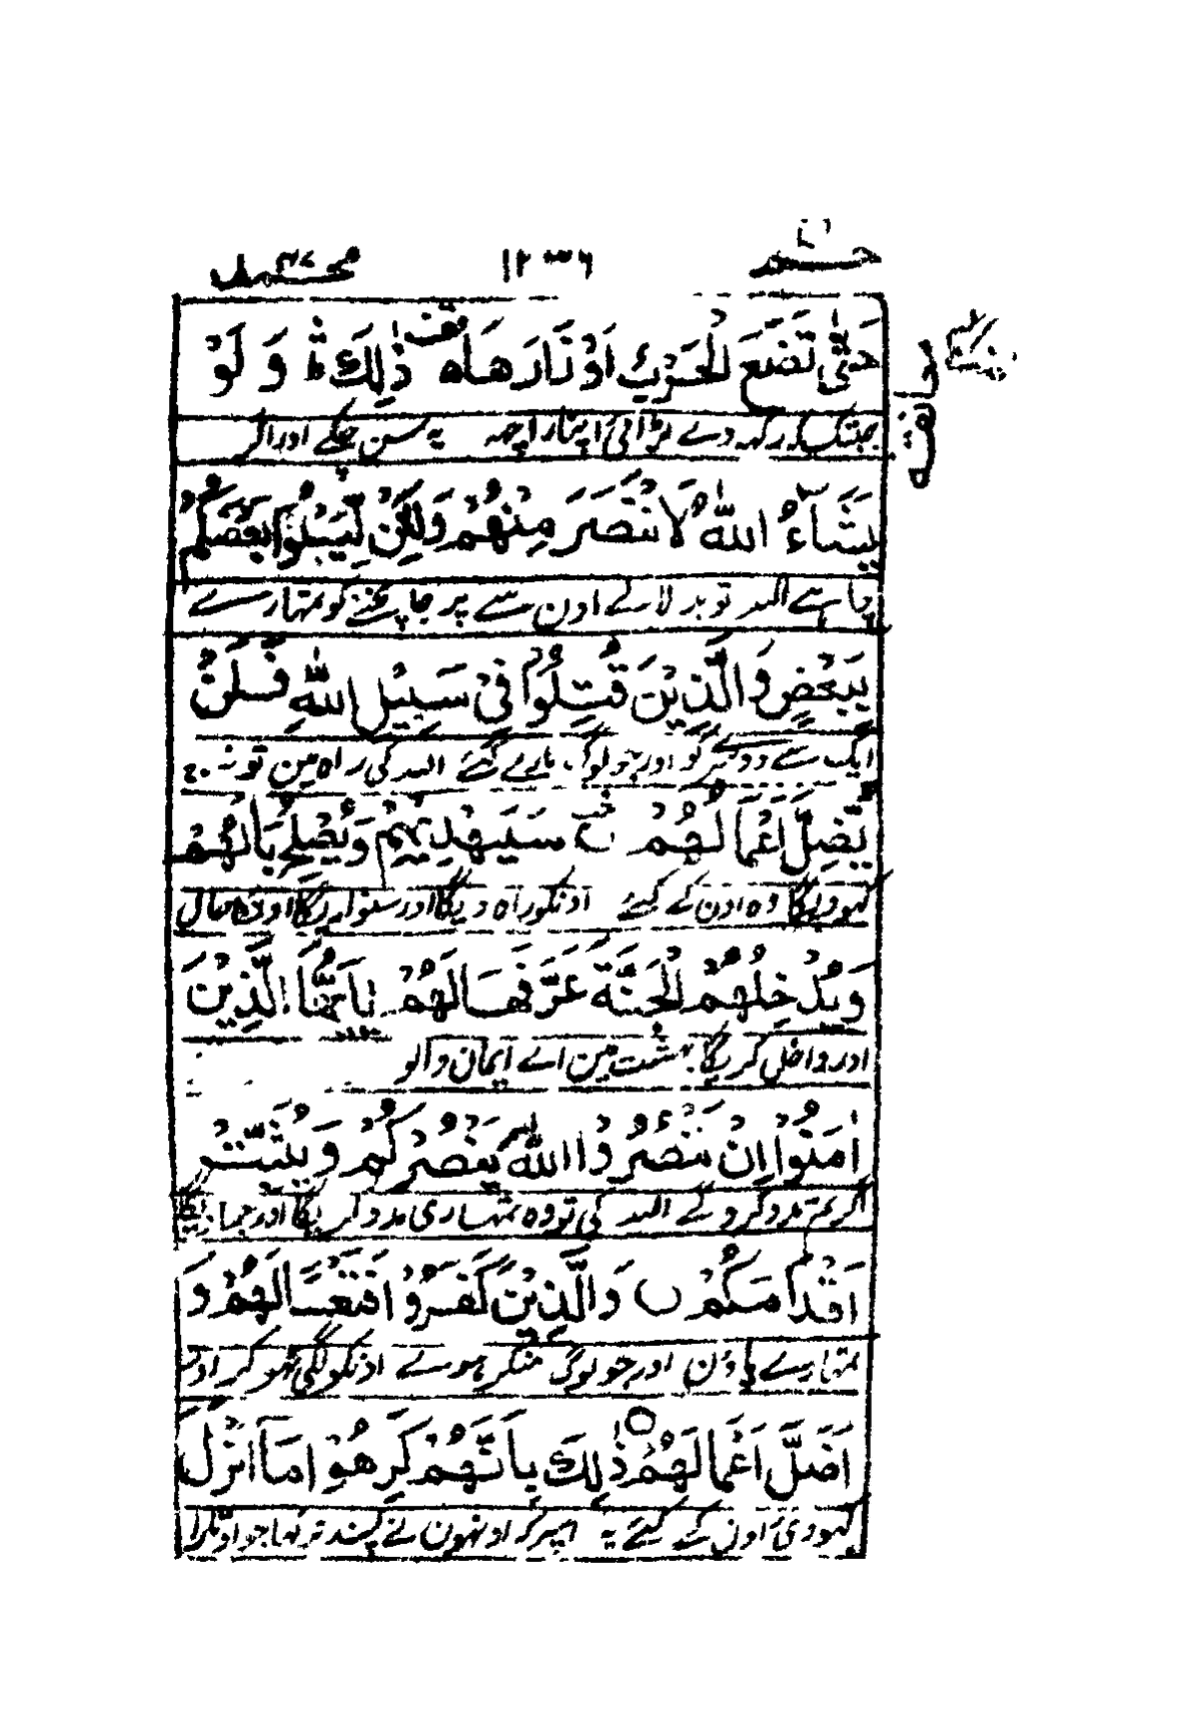 حٰمٓ ۲۶ ۱۲۳۶ محمد ۴۷
حَتّٰى تَضَعَ الْحَرْبُ اَوْزَارَهَا ذٰلِكَ ۛ وَلَوْ
جبتک رکہدے لڑائی اپنا راچھہ یہ سن چکے اور اگر
يَشَآءُ اللّٰهُ لَانْتَصَرَ مِنْهُمْ وَلٰكِنْ لِّيَبْلُوَا۟ بَعْضَكُمْ
چاہے اللہ تو بدلا لے اون سے پر جاپنچنے کو تمہارے
بِبَعْضٍ وَالَّذِيْنَ قُتِلُوْا فِيْ سَبِيْلِ اللّٰهِ فَلَنْ
ایک سے دوسرے کو اور جو لوگ مارے گئے اللہ کی راہ مین تو نہ
يُّضِلَّ اَعْمَالَهُمْ سَيَهْدِيْهِمْ وَيُصْلِحُ بَالَهُمْ
کہوویگا وہ اون کے کئے اونکو راہ دیگا اور سنواریگا اونکا حال
وَيُدْخِلُهُمُ الْجَنَّةَ عَرَّفَهَا لَهُمْ يٰاَيُّهَا الَّذِيْنَ
اور داخل کریگا بہشت مین اے ایمان والو
اٰمَنُوْا اِنْ تَنْصُرُوا اللّٰهَ يَنْصُرْكُمْ وَيُثَبِّتْ
اگر تم مدد کروگے اللہ کی تو وہ تمہاری مدد کریگا اور جماویگا
اَقْدَامَكُمْ وَالَّذِيْنَ كَفَرُوْا فَتَعْسًا لَهُمْ وَ
تمہارے پاؤن اور جو لوگ منکر ہوے اونکو لگی ٹھوکر اور
اَضَلَّ اَعْمَالَهُمْ ذٰلِكَ بِاَنَّهُمْ كَرِهُوْا مَا اَنْزَلَ
کہودی اون کے کئے یہ اسپر کہ اونہون نے پسند نہ کیا جو اوتارا